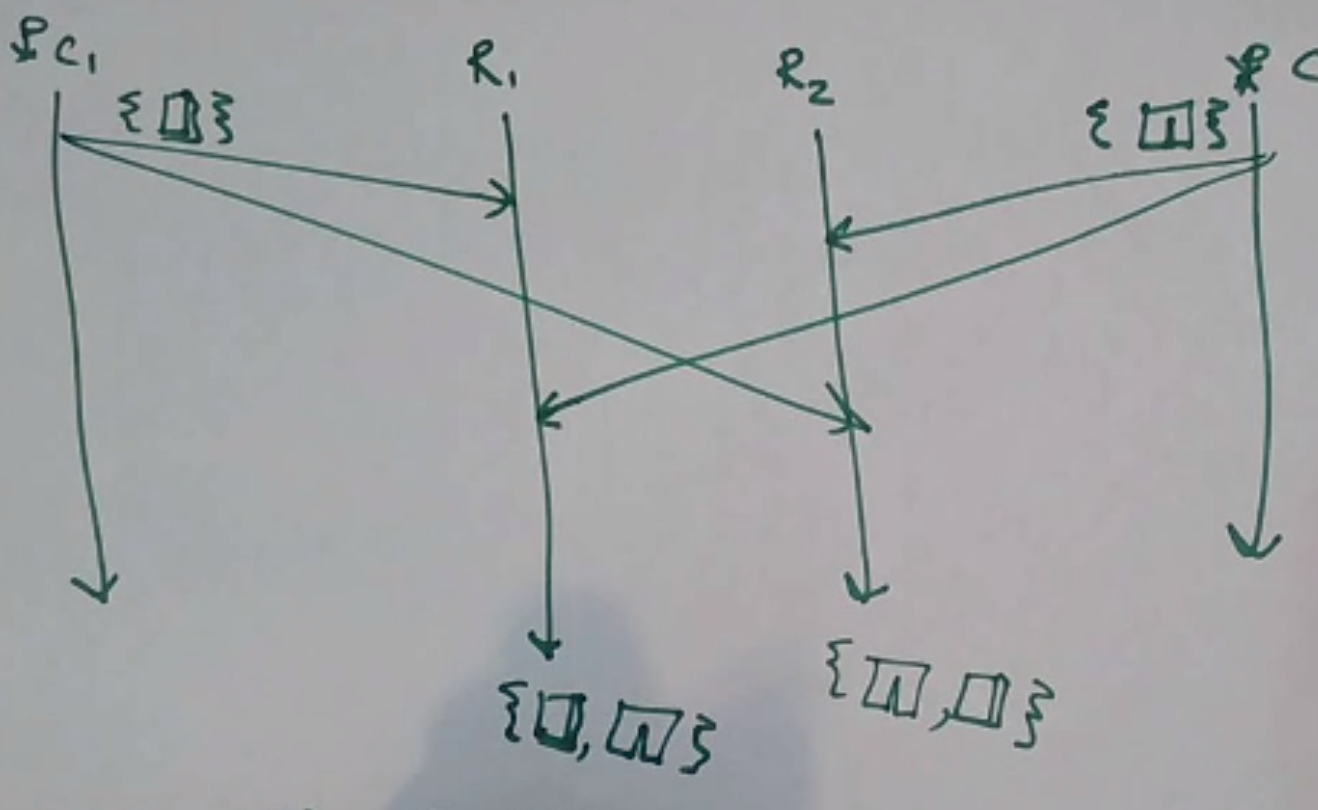 C₁
R₁
R₂
C
{ }
{ }
{ , }
{ , }